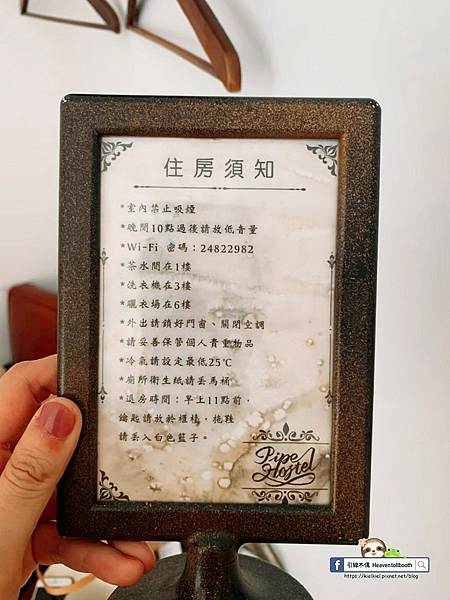 住房須知
*室內禁止吸煙
*晚間10點過後請放低音量
*Wi-Fi 密碼：24822982
*茶水間在1樓
*洗衣機在3樓
*曬衣場在6樓
*外出請鎖好門窗、關閉空調
*請妥善保管個人貴重物品
*冷氣請設定最低25℃
*廁所衛生紙請丟馬桶
*退房時間：早上11點前，
鑰匙請放於櫃檯，拖鞋
請丟入白色籃子。
Pipe
Hostel
引線不偶 Heaventollbooth
https://kielkiel.pixnet.net/blog